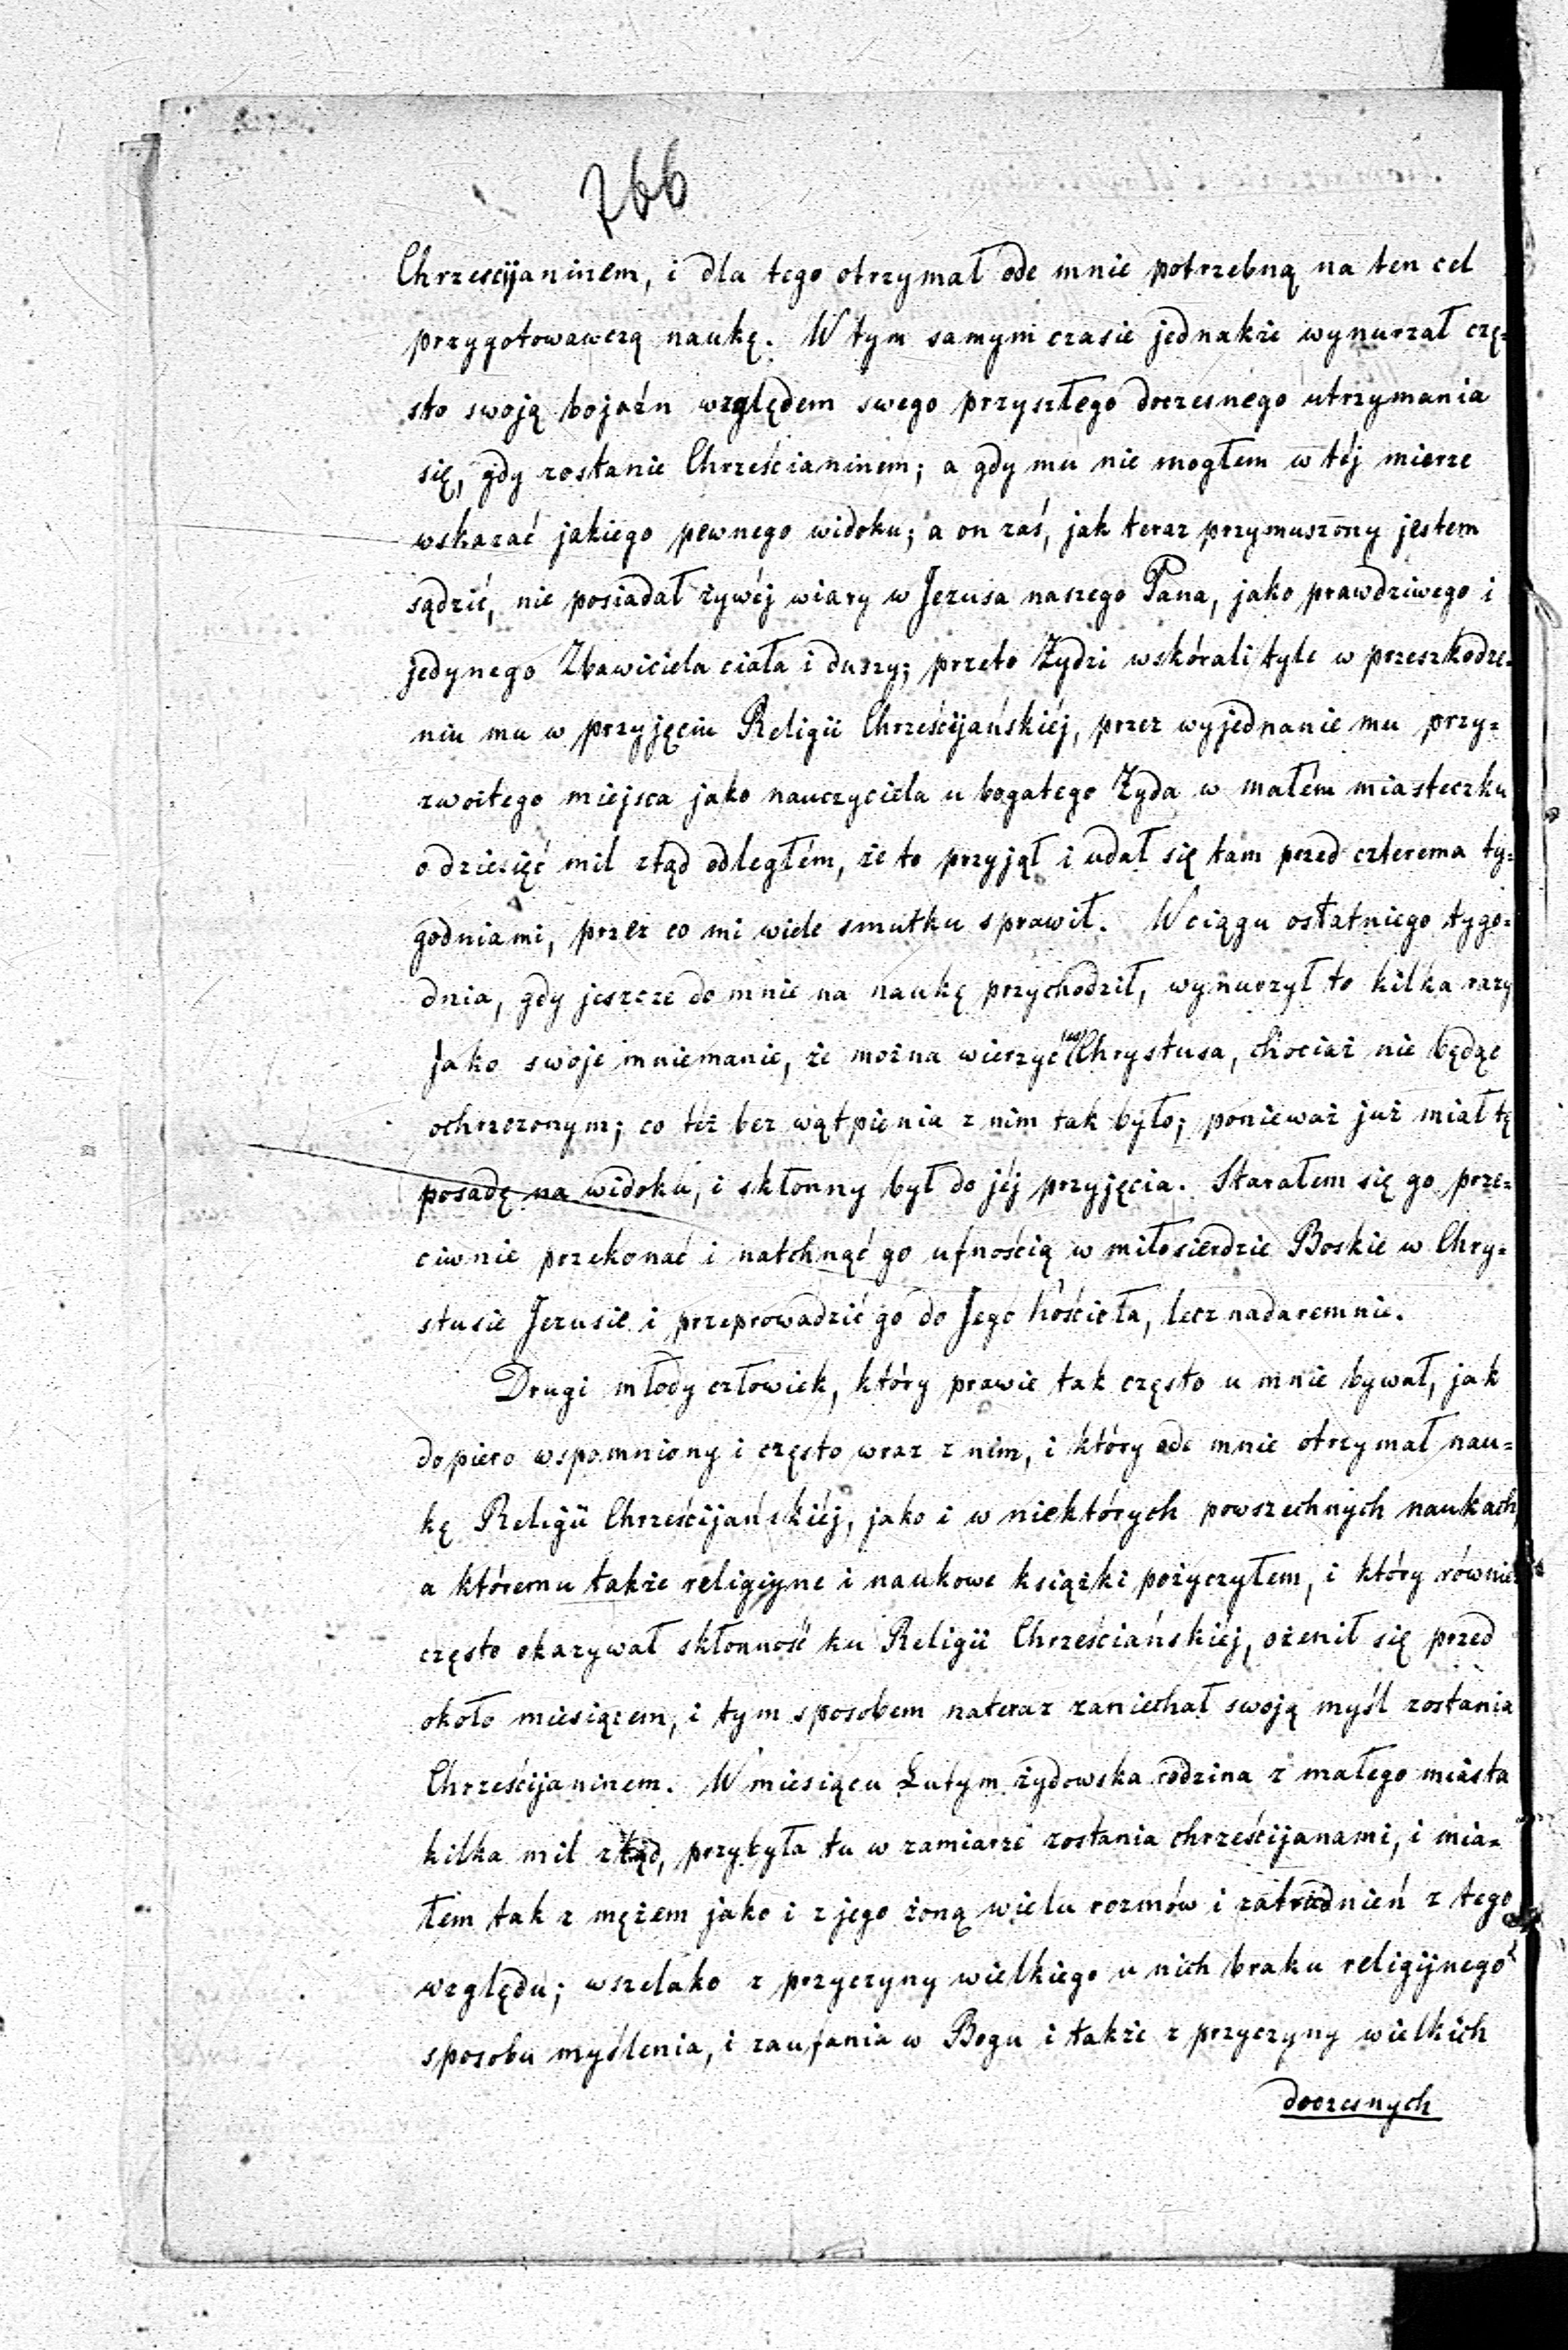 766
Chrześcijaninem, i dla tego otrzymał ode mnie potrzebną na ten cel
przygotowawczą naukę. W tym samym czasie jednakże wynurzał czę=
sto swoją bojaźn względem swego przyszłego doczesnego utrzymania
się, gdy zostanie Chrześcianinem; a gdy mu nie mogłem w téj mierze
wskazać jakiego pewnego widoku; a on zaś, jak teraz przymuszony jestem
sądzić, nie posiadał żywéj wiary w Jezusa naszego Pana, jako prawdziwego i
jedynego Zbawiciela ciała i duszy; przeto Żydzi wskórali tyle w przeszkodze=
niu mu w przyjęciu Religii Chrześcijańskiéj, przez wyjednanie mu przy=
zwoitego miejsca jako nauczyciela u bogatego Żyda w małém miasteczku
o dziesięć mil ztąd odległém, że to przyjął i udał się tam przed czterema ty=
godniami, przez co mi wiele smutku sprawił. W ciągu ostatniego tygo=
dnia, gdy jeszcze do mnie na naukę przychodził, wynurzył to kilka razy
jako swoje mniemanie, że można wierzyć w Chrystusa, chociaż nie będąc
ochrzczonym; co też bez wątpienia z nim tak było; ponieważ już miał tę
posadę na widoku, i skłonny był do jéj przyjęcia. Starałem się go prze=
ciwnie przekonać i natchnąć go ufnością w miłosierdzie Boskie w Chry=
stusie Jezusie i przeprowadzić go do Jego kościoła, lecz nadaremnie.
Drugi młody człowiek, który prawie tak często u mnie bywał, jak
dopiero wspomniony i często wraz z nim, i który ode mnie otrzymał nau=
kę Religii Chrześcijańskiéj, jako i w niektórych powszechnych naukach,
a któremu także religijne i naukowe książki pożyczyłem, i który również
często okazywał skłonność ku Religii Chrześciańskiéj, ożenił się przed
około miesiącem, i tym sposobem nateraz zaniechał swoją myśl zostania
Chrześcijaninem. W miesiącu Lutym żydowska rodzina z małego miasta
kilka mil ztąd, przybyła tu w zamiarze zostania chrześcijanami, i mia=
łem tak z mężem jako i z jego żoną wielu rozmów i zatrudnień z tego
względu; wszelako z przyczyny wielkiego u nich braku religijnego
sposobu myślenia, i zaufania w Bogu i także z przyczyny wielkich
doczesnych